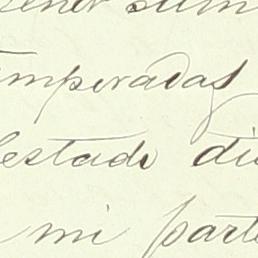 ener sum
mperadas
estado di
mi parte